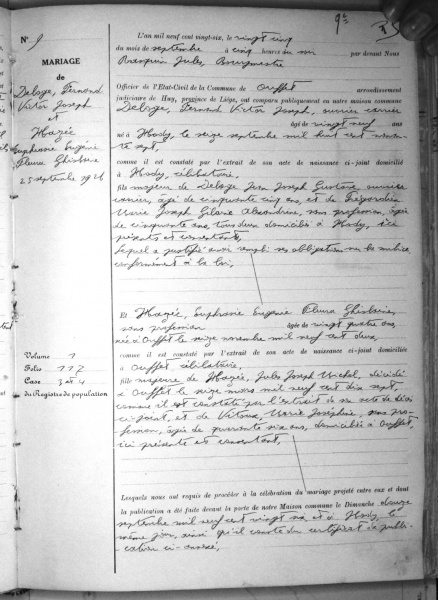 N° 9
MARIAGE
de
Deloge, Fernand
Victor Joseph
et
Hazée
Euphrosie Eugénie
Fleura Ghislaine
25 septembre 1926
Volume 1
Folio 117
Case 3 et 4
du Registre de population
L'an mil neuf cent vingt-six, le vingt cinq
du mois de septembre à cinq heures du soir par devant Nous
Jules, Bourgmestre
Officier de l'Etat-Civil de la Commune de Ouffet arrondissement
judiciaire de Huy, province de Liége, ont comparu publiquement en notre maison commune
Deloge, Fernand Victor Joseph, ouvrier carrier
âgé de vingt neuf ans
né à Hody, le seize septembre mil huit cent nonan-
te sept,
comme il est constaté par l'extrait de son acte de naissance ci-joint domicilié
à Hody, célibataire,
fils majeur de Deloge Jean Joseph Gustave ouvrier
carrier, âgé de cinquante cinq ans, et de
Marie Joseph Alexandrine, sans profession, âgée
de cinquante ans, tous deux domiciliés à Hody, ici
présents et consentants,
lequel a justifié avoir rempli ses obligations sur la milice
conformément à la loi,
Et Hazée, Euphrosie Eugénie Fleura Ghislaine,
sans profession âgée de vingt quatre ans,
née à Ouffet le seize novembre mil neuf cent deux,
comme il est constaté par l'extrait de son acte de naissance ci-joint domiciliée
à Ouffet célibataire,
fille majeure de Hazée, Jules Joseph Michel, décédé
à Ouffet le seize mars mil neuf cent dix sept,
comme il est constaté par l'extrait de son acte de décès
ci-joint, et de Marie Joséphine, sans pro-
fession, âgée de quarante six ans, domiciliée à Ouffet,
ici présente et consentant,
Lesquels nous ont requis de procéder à la célébration du mariage projeté entre eux et dont
la publication a été faite devant la porte de notre Maison commune le Dimanche douze
septembre mil neuf cent vingt six et à Hody le
même jour, ainsi qu'il conste du certificat de publi-
cation ci-annexé,